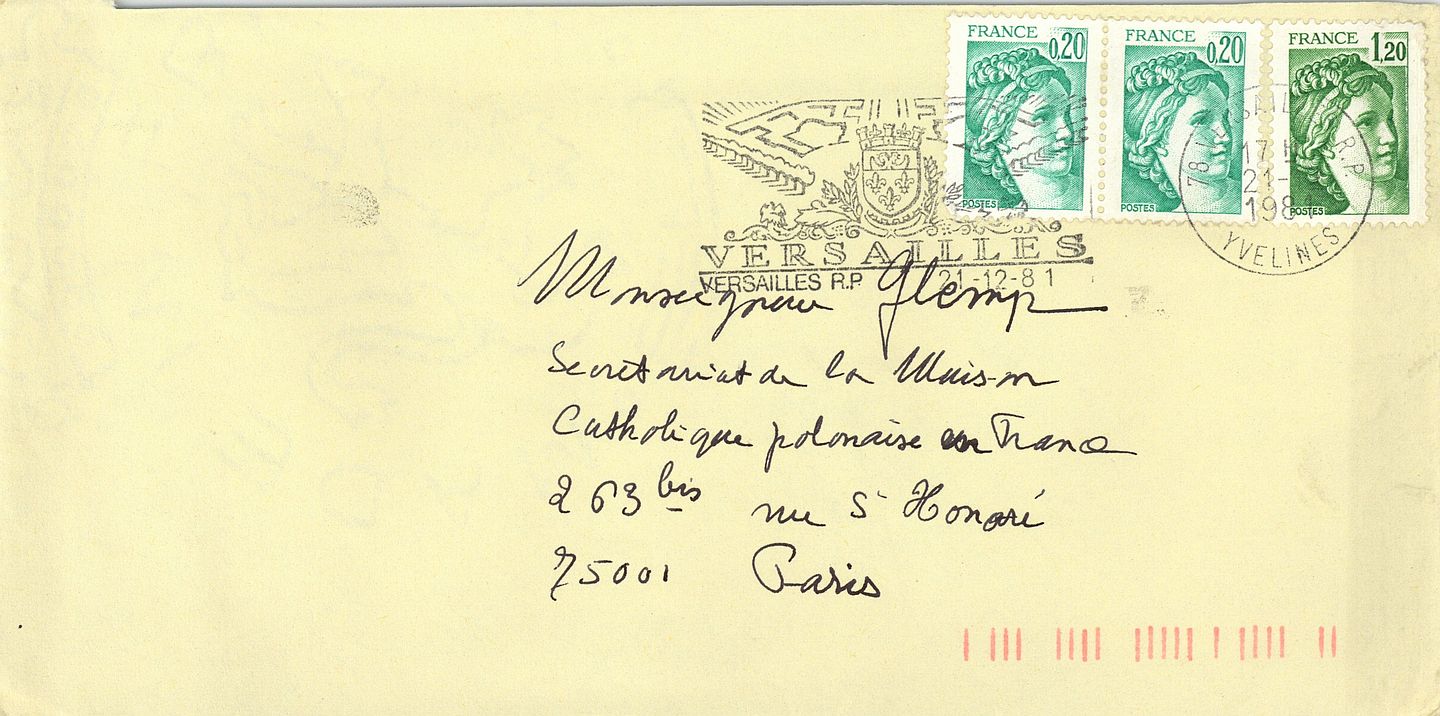 FRANCE 0,20
POSTES
FRANCE 0,20
POSTES
FRANCE 1,20
POSTES
VERSAILLES
VERSAILLES R.P. 21-12-81
78 R.P.
17 H
21-
1981
YVELINES
Monseigneur Glemp
Secretariat de la Maison
Catholique polonaise en France
263 bis rue St Honoré
75001 Paris